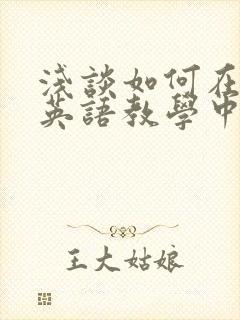 淺談如何在
英語教學中
王大姑娘